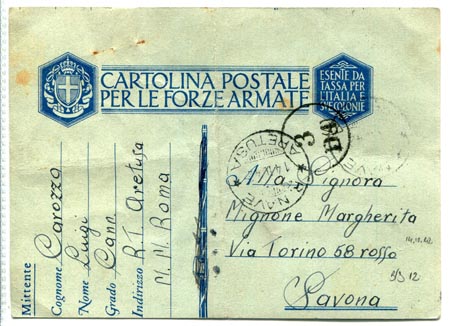 CARTOLINA POSTALE
PER LE FORZE ARMATE
ESENTE DA
TASSA PER
L'ITALIA E
SUE COLONIE
Mittente
Cognome Carozzo
Nome Luigi
Grado Cann
Indirizzo R.T. Aretusa
M.M. Roma
R. NAVE
ARETUSA
3
Alla Signora
Mignone Margherita
Via Torino 68 rosso
Savona